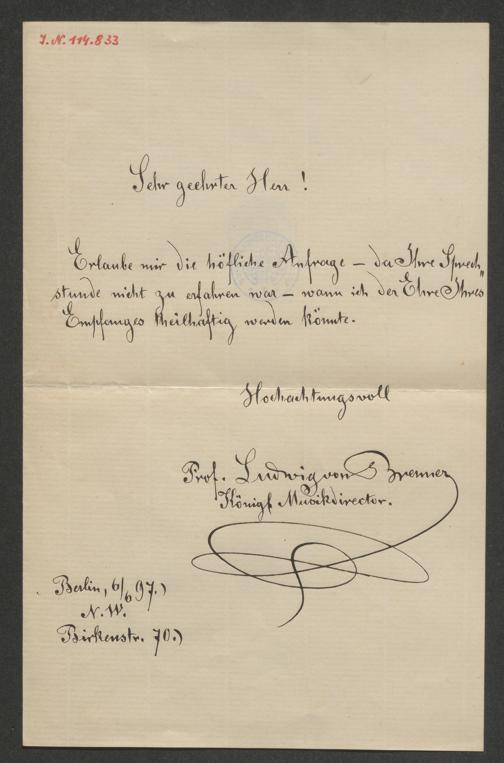 I.N. 114.833
Sehr geehrter Herr!
Erlaube mir die höfliche Anfrage – da Ihre Sprech„
stunde nicht zu erfahren war – wann ich der Ehre Ihres
Empfanges theilhaftig werden könnte.
Hochachtungsvoll
Prof. Ludwig von Brenner
Königl. Musikdirector.
Berlin, 6/6 97.)
N. W.
Birkenstr. 70.)